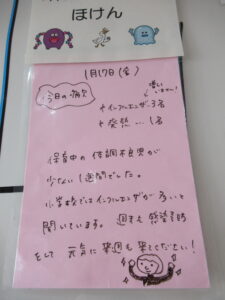 ほけん
1月17日(金)
今日の病欠
インフルエンザ 3名
発熱 … 1名
保育中の 体調不良児が
少ない1週間でした。
小学校ではインフルエンザが多いと
聞いています。 週末も 感染予防
をして 元気に来週も来てくださいね!